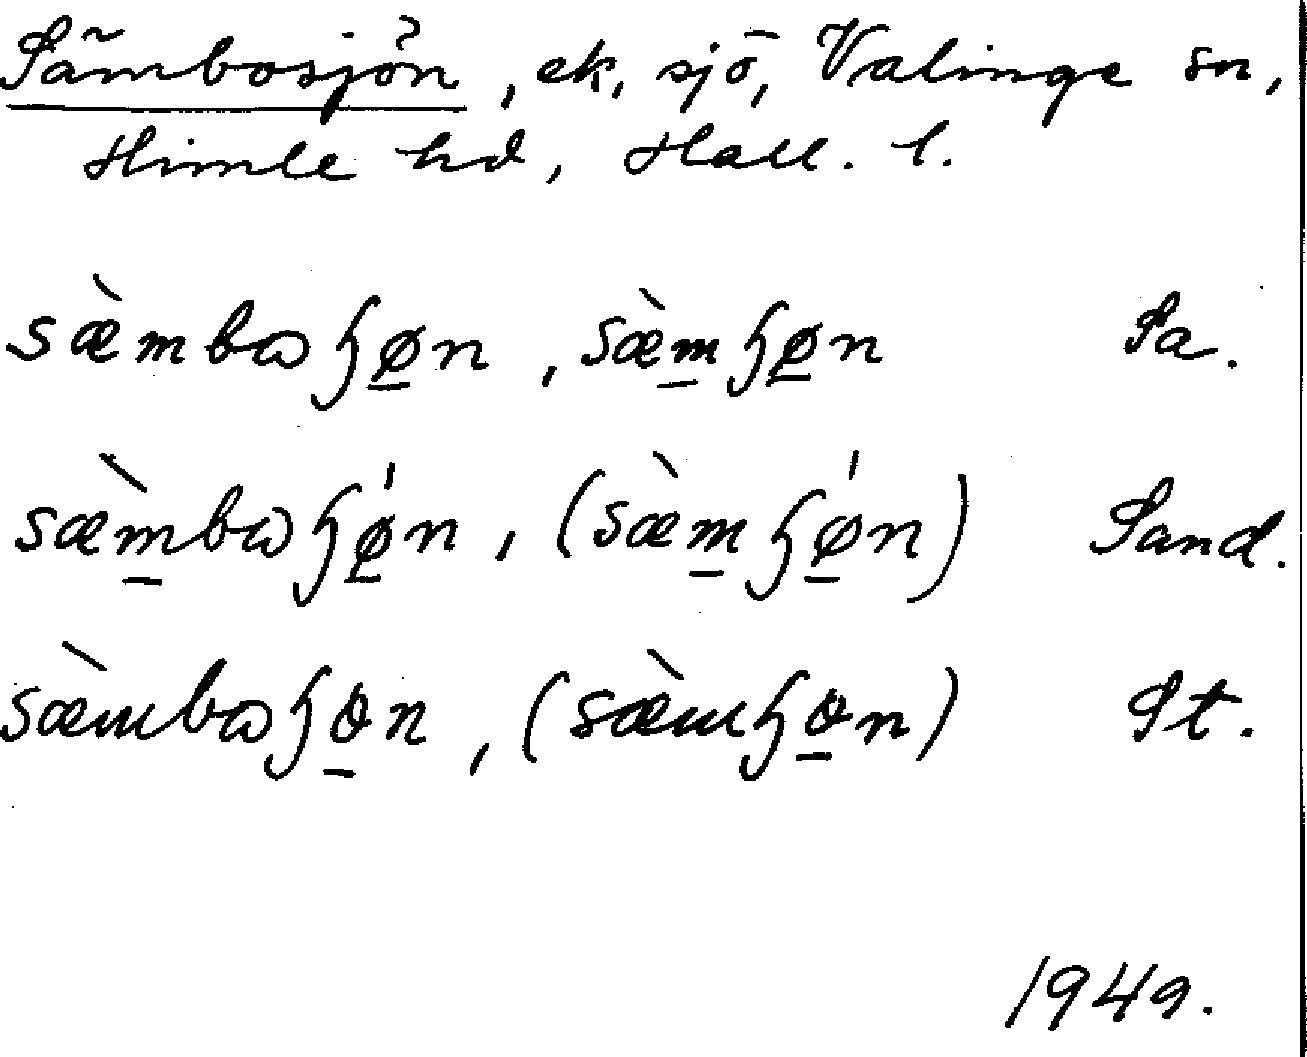 Sämbosjön, ek, sjö, Valinge sn,
Himle hd, Hall. l.
sæ̀mbωɧø̲n, sæ̀m̲ɧø̲n Sa.
sæ̀m̲bωɧǿ̲n, (sæ̀m̲ɧǿ̲n) Sand.
sæ̀mbωɧɵ̲n, (sæ̀mɧɵ̲n) St.
1949.